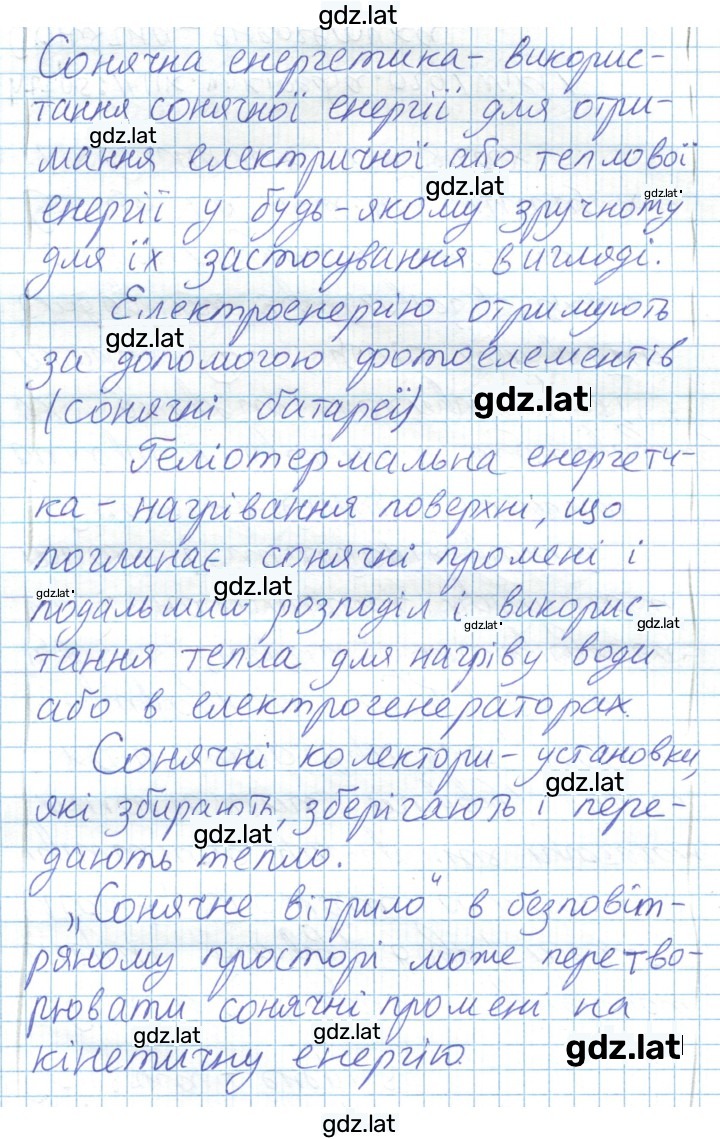 gdz.lat
Сонячна енергетика - викорис-
тання сонячної енергії для отри-
gdz.lat
мання електричної або теплової
gdz.lat
gdz.lat
енергії у будь-якому зручному
для їх застосування вигляді.
Електроенергію отримують
gdz.lat
за допомогою фотоелементів
(сонячні батареї)
gdz.lat
Геліотермальна енергети-
ка - нагрівання поверхні, що
поглинає сонячні промені і
gdz.lat
gdz.lat
подальший розподіл і викорис-
gdz.lat
gdz.lat
тання тепла для нагріву води
або в електрогенераторах.
Сонячні колектори - установки,
gdz.lat
які збирають, зберігають і пере-
gdz.lat
дають тепло.
„Сонячне вітрило" в безповіт-
ряному просторі може перетво-
рювати сонячні промені на
gdz.lat
gdz.lat
кінетичну енергію.
gdz.lat
gdz.lat